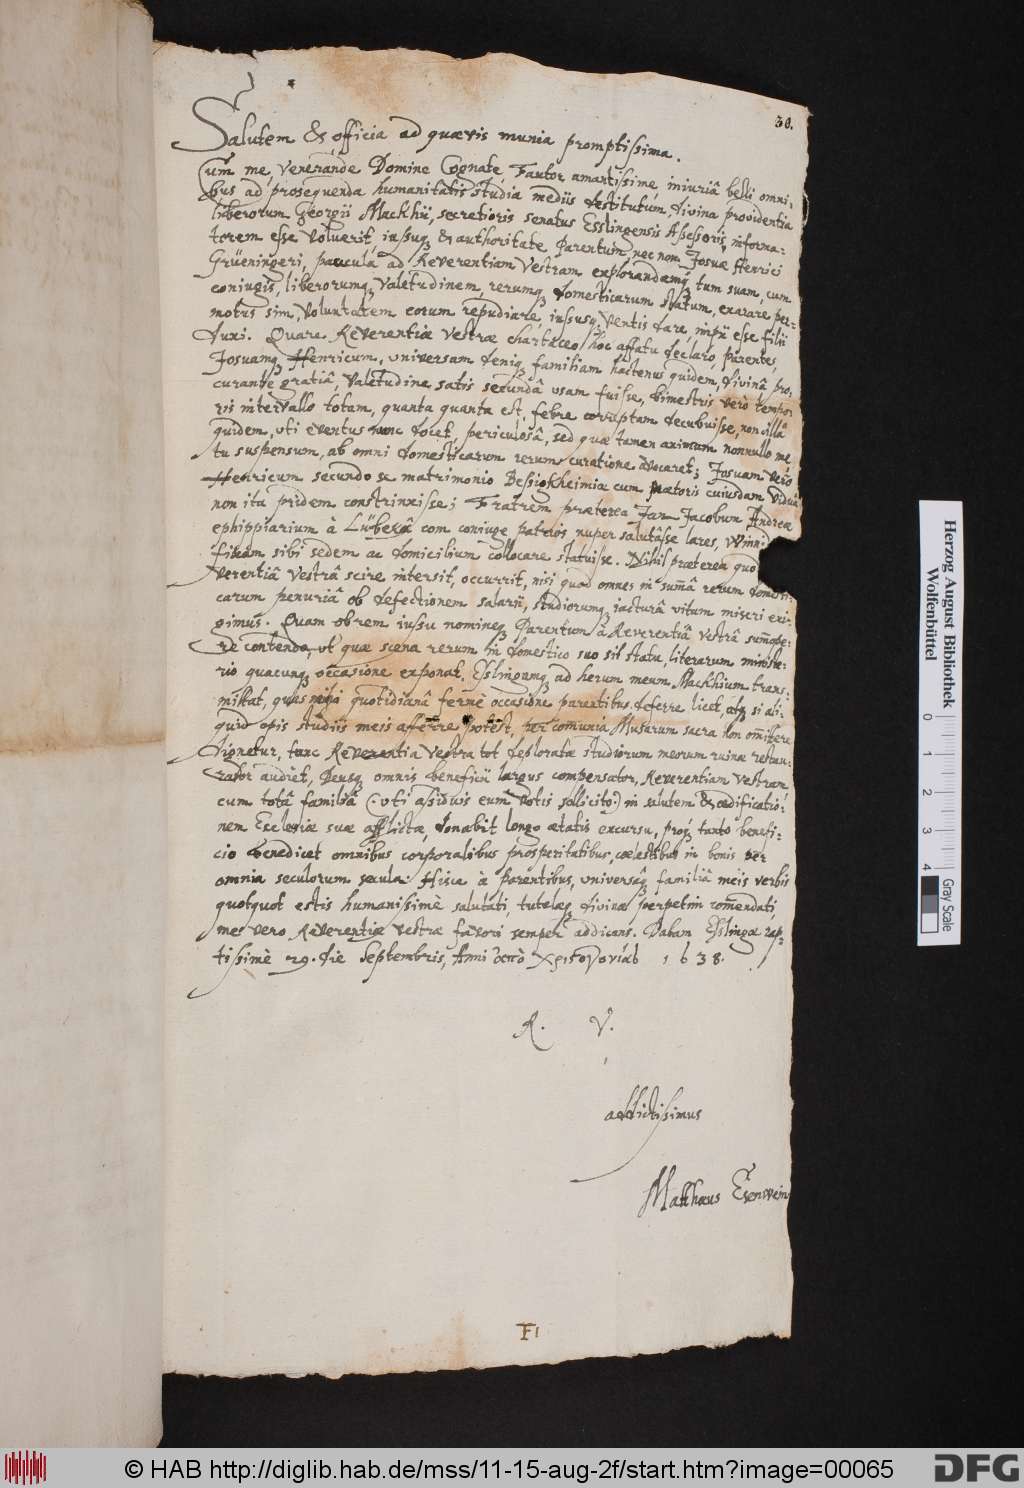 30.
Salutem & officia ad quævis munia promptissima.
Cum me, Venerande Domine Cognate, Fautor amantissime, iniuriâ belli omni-
bus ad prosequenda humanitatis studia mediis destitutum, divina providentia
liberorum Georgii Mackhii, secretioris senatus Esslingensis Assessoris, informa-
torem esse voluerit, iussuq; & authoritate Parentum, nec non Josuæ Henrici
Grüeningeri, paucula ad Reverentiam Vestram explorandæmq; tum suam, cum
coniugis, liberorumq; valetudinem, rerumq; domesticarum statum, exarare per-
motus sim, voluntatem eorum repudiare, iussusq; ventis dare, impii esse filii
duxi. Quare Reverentiæ Vestræ chartaceo hoc affatu declaro, parentes,
Josuamq; Henricum, universam deniq; familiam hactenus quidem, divinâ pro-
curante gratiâ, valetudine satis secundâ usam fuisse, bimestris verò tempo-
ris intervallo totam, quanta quanta est, febre corruptam decubuisse, non illâ
quidem, uti eventus nunc docet, periculosâ, sed quæ tamen animum nonnullo me-
tu suspensum, ab omni domesticarum rerum curatione avocaret; Josuam verò
Henricum secundo se matrimonio Bessigkheimiæ cum prætoris cuiusdam viduâ
non ita pridem constrinxisse; Fratrem præterea Jan Jacobum Andreæ
ephippiarium à Lübexâ com coniuge patrios nuper salutâsse lares, Winni-
sibi sedem ac domicilium collocare statuisse. Nihil præterea quod
verentiâ Vestrâ scire intersit, occurrit, nisi quod omnes in summâ rerum domesti-
carum penuriâ ob defectionem salarii, studiorumq; jacturâ vitam miseri exi-
gimus. Quam obrem iussu nomineq; Parentum à Reverentiâ Vestrâ summope-
re contendo, ut quæ scæna rerum in domestico suo sit statu, literarum ministe-
rio quacunq; occasione exponat, Esslingamq; ad herum meum Mackhium trans-
mittat, quas quotidianâ fermè occasione parentibus deferre licet, atq; si ali-
quid opis studiis meis afferre potest, per comunia Musarum sacra non omittere
dignetur, tunc Reverentia Vestra tot deploratæ studiorum meorum ruinæ restau-
rator audiet, Deusq; omnis beneficii largus compensator, Reverentiam Vestram
cum totâ familiâ (: uti assiduis eum votis sollicito :) in salutem & ædificatio-
nem Ecclesiæ suæ afflictæ, donabit longo ætatis excursu, proq; tanto benefi-
cio benedicet omnibus corporalibus prosperitatibus, cœlestibus in bonis per
omnia seculorum secula. Hisce à parentibus, universâq; familiâ meiis verbis
quotquot estis humanissimè salutati, tutelæq; divinæ perpetim commendati,
me vero Reverentiæ Vestræ favori semper addicans. Dabam Esslingæ rap-
tissimè 29. die Septembris, Anni 1638.
R. V.
addictissimus
Matthæus Esenwein
F1
Herzog August Bibliothek
Wolfenbüttel
0 1 2 3 4
Gray Scale
© HAB http://diglib.hab.de/mss/11-15-aug-2f/start.htm?image=00065
DFG